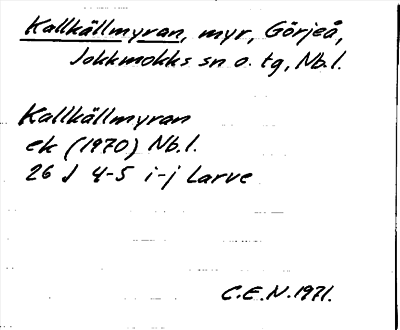 Kallkällmyran, myr, Görjeå,
Jokkmokks sn o. tg, Nb.l.
Kallkällmyran
ek (1970) Nb.l.
26 J 4-5 i-j Larve
C.E.N. 1971.